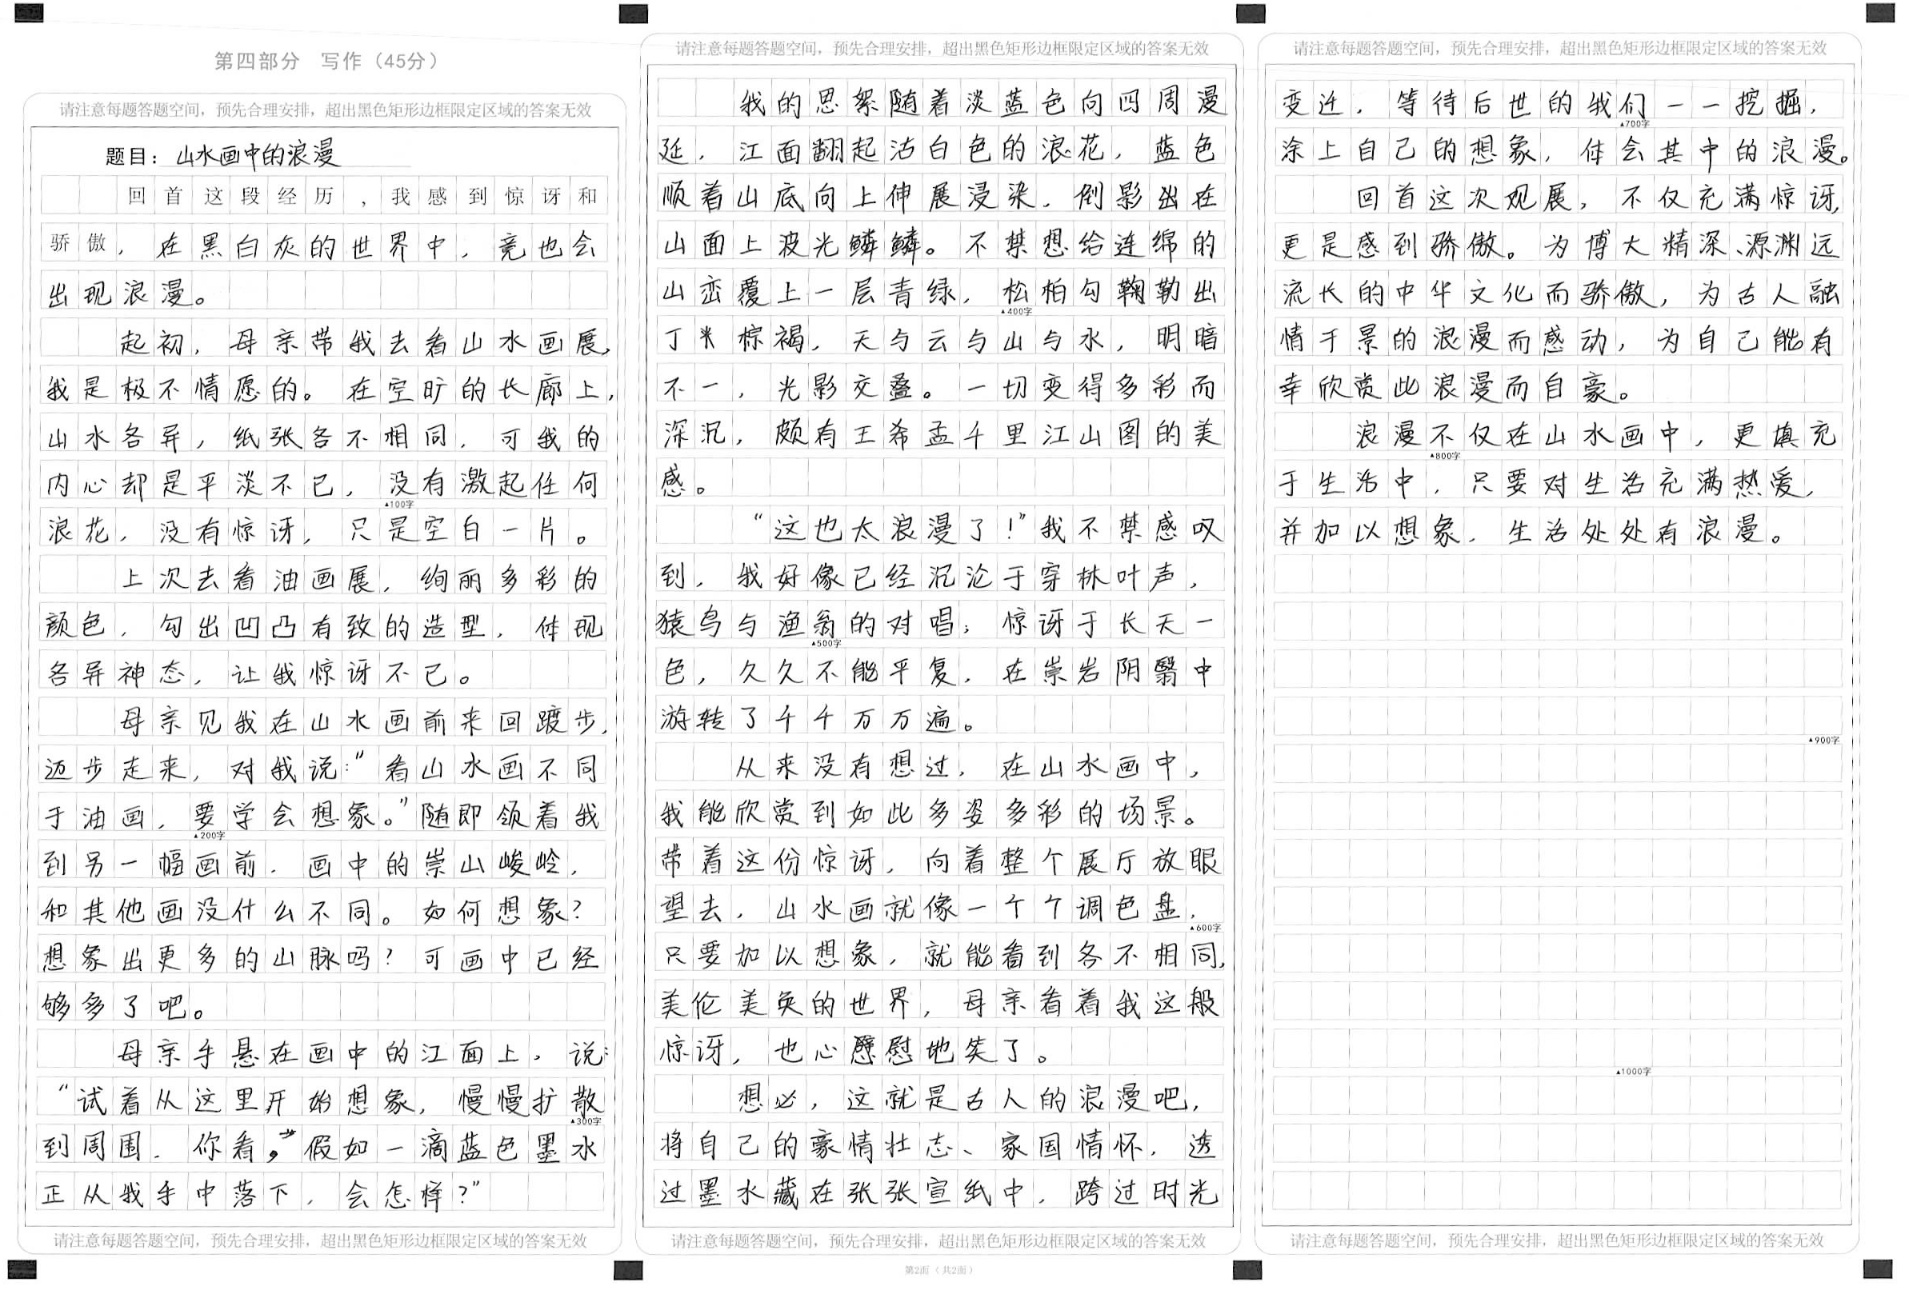 第四部分 写作（45分）
请注意每题答题空间，预先合理安排，超出黑色矩形边框限定区域的答案无效
题目：山水画中的浪漫
回首这段经历，我感到惊讶和
骄傲，在黑白灰的世界中，竟也会
出现浪漫。
起初，母亲带我去看山水画展，
我是极不情愿的。在空旷的长廊上，
山水各异，纸张各不相同，可我的
内心却是平淡不已，没有激起任何
▲100字
浪花，没有惊讶，只是空白一片。
上次去看油画展，绚丽多彩的
颜色，勾出凹凸有致的造型，体现
各异神态，让我惊讶不已。
母亲见我在山水画前来回踱步，
迈步走来，对我说：“看山水画不同
于油画，要学会想象。”随即领着我
▲200字
到另一幅画前，画中的崇山峻岭，
和其他画没什么不同。如何想象？
想象出更多的山脉吗？可画中已经
够多了吧。
母亲手悬在画中的江面上，说：
“试着从这里开始想象，慢慢扩散
▲300字
到周围，你看，假如一滴蓝色墨水
正从我手中落下，会怎样？”
请注意每题答题空间，预先合理安排，超出黑色矩形边框限定区域的答案无效
请注意每题答题空间，预先合理安排，超出黑色矩形边框限定区域的答案无效
我的思絮随着淡蓝色向四周漫
延，江面翻起沽白色的浪花，蓝色
顺着山底向上伸展浸染，倒影出在
山面上波光鳞鳞。不禁想给连绵的
山峦覆上一层青绿，松柏勾鞠勒出
▲400字
丁米棕褐，天与云与山与水，明暗
不一，光影交叠。一切变得多彩而
深沉，颇有王希孟千里江山图的美
感。
“这也太浪漫了！”我不禁感叹
到，我好像已经沉沦于穿林叶声，
猿鸟与渔翁的对唱；惊讶于长天一
▲500字
色，久久不能平复，在崇岩阴翳中
游转了千千万万遍。
从来没有想过，在山水画中，
我能欣赏到如此多姿多彩的场景。
带着这份惊讶，向着整个展厅放眼
望去，山水画就像一个个调色盘，
▲600字
只要加以想象，就能看到各不相同，
美伦美奂的世界，母亲看着我这般
惊讶，也心慰地笑了。
想必，这就是古人的浪漫吧，
将自己的豪情壮志、家国情怀，透
过墨水藏在张张宣纸中，跨过时光
请注意每题答题空间，预先合理安排，超出黑色矩形边框限定区域的答案无效
第2面（共2面）
请注意每题答题空间，预先合理安排，超出黑色矩形边框限定区域的答案无效
变迁，等待后世的我们一一挖掘，
▲700字
涂上自己的想象，体会其中的浪漫。
回首这次观展，不仅充满惊讶，
更是感到骄傲。为博大精深、源渊远
流长的中华文化而骄傲，为古人融
情于景的浪漫而感动，为自己能有
幸欣赏此浪漫而自豪。
浪漫不仅在山水画中，更填充
▲800字
于生活中，只要对生活充满热爱，
并加以想象，生活处处有浪漫。
▲900字
▲1000字
请注意每题答题空间，预先合理安排，超出黑色矩形边框限定区域的答案无效